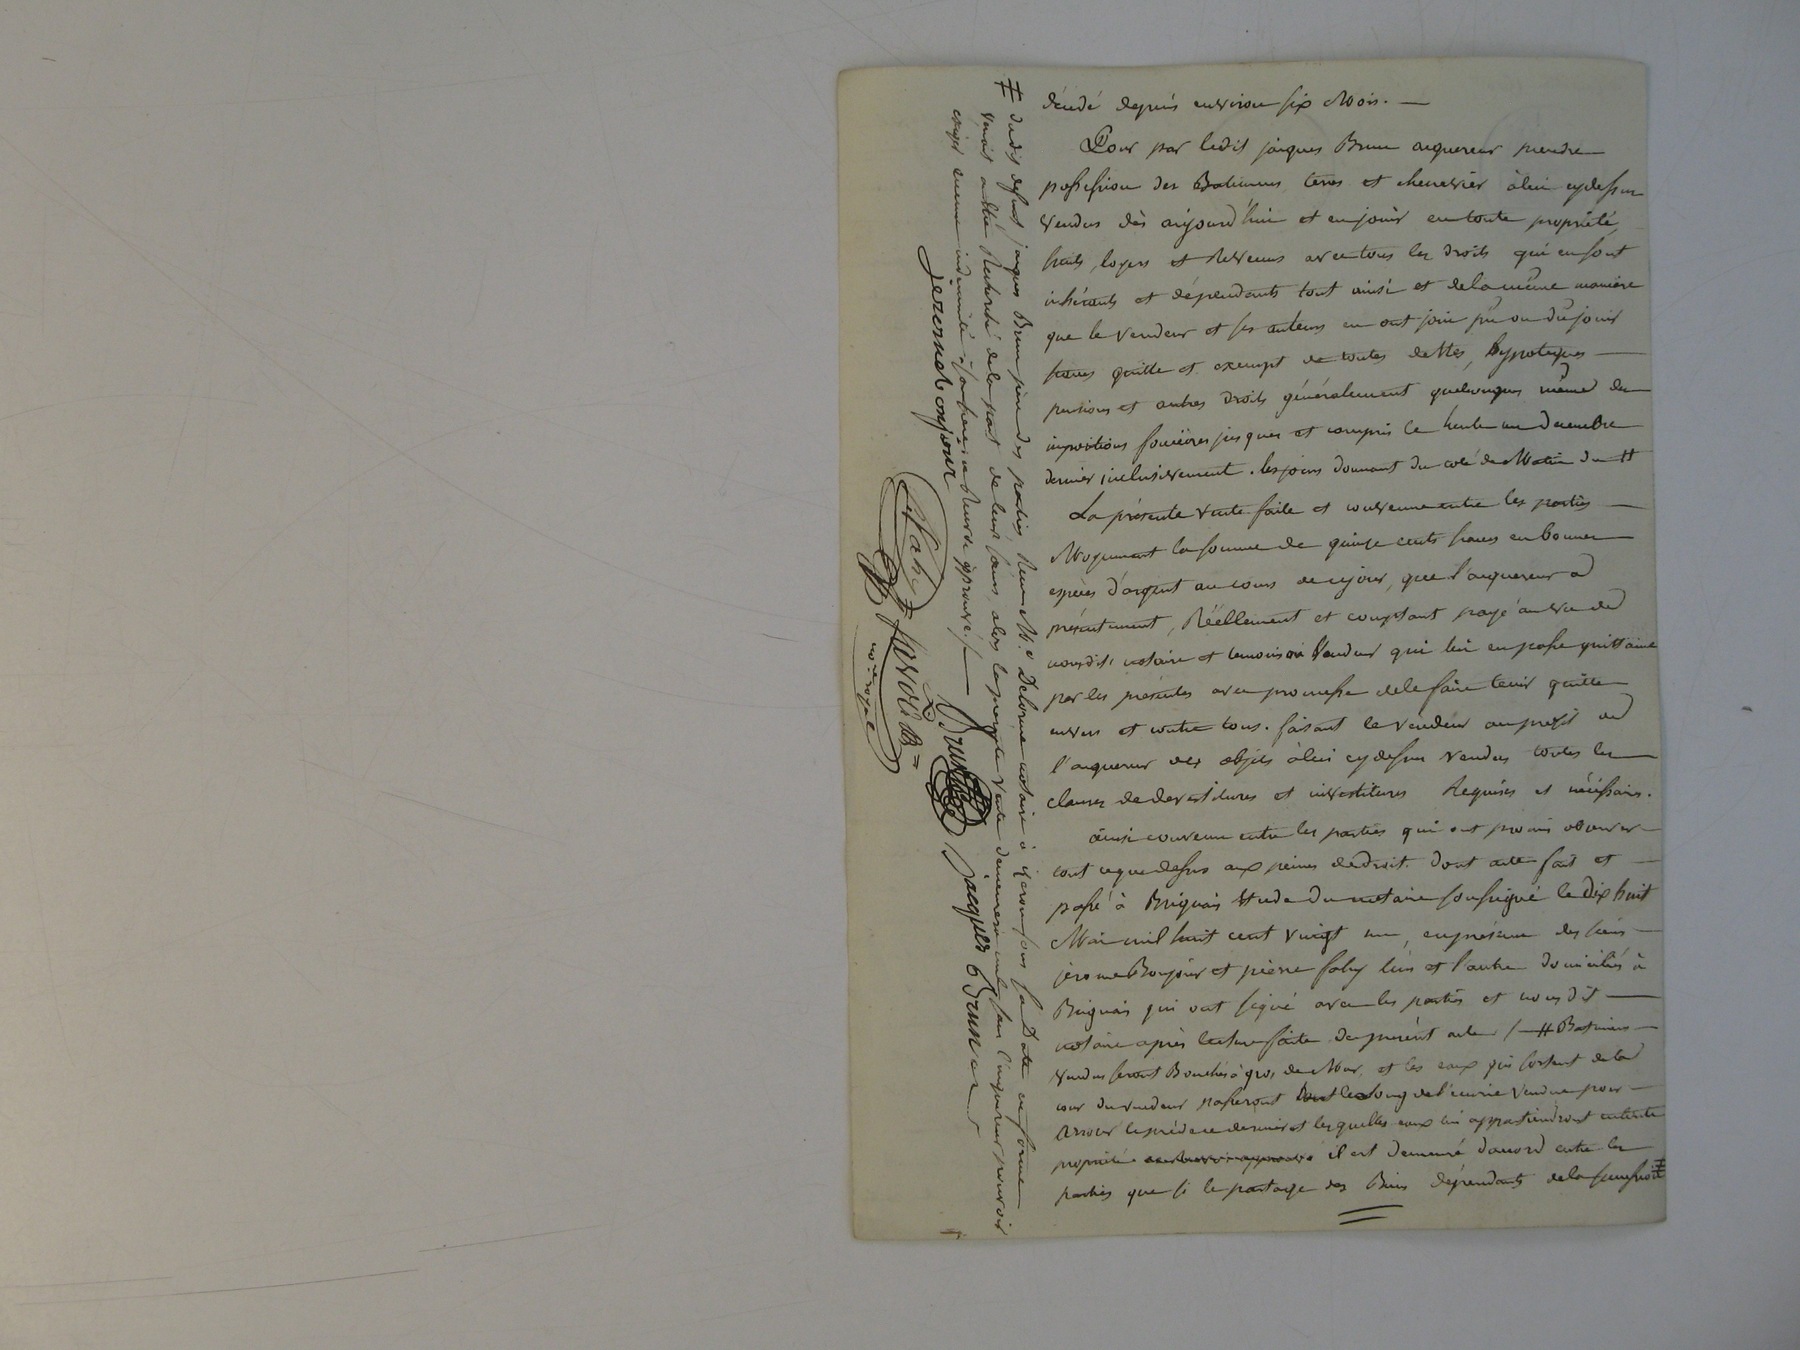 décédé depuis environ six Mois. —
Pour par ledit jacques Brun acquereur prendre
possession des Batiments terres et chenevier à lui cydessus
vendus dès aujourd'hui et en jouir en toute propriété,
fruits, loyers et Revenus avec tous les droits qui en sont
inhérents et dépendants tout ainsi et de la même manière
que le vendeur et ses auteurs en ont joui pu ou dû jouir
francs quitte et exempt de toutes dettes, hypoteques —
pensions et autres droits généralement quelconques même des
impositions foncières jusques et compris le trente un Decembre
dernier inclusivement. les jours donnant du coté de Matin du #
La présente vente faite et convenue entre les parties —
Moyennant la somme de quinze cents francs en bonnes
espèces d'argent au cours de ce jour, que l'acquereur a
présentement, Réellement et comptant payé au vu de
nousdit notaire et temoins au Vendeur qui lui en passe quittance
par les présentes avec promesse de le faire tenir quitte
envers et contre tous. faisant le vendeur au profit de
l'acquereur des objets à lui cydessus vendus toutes les
clauses de devestitures et investitures Requises et nécéssaires.
ainsi convenu entre les parties qui ont promis observer
tout ce que dessus aux peines de droit. dont acte fait et —
passé à Brignais Etude du notaire soussigné le dix huit
Mai mil huit cent vingt un, en présence des sieurs —
jerome Bonjour et pierre faby l'un et l'autre domiciliés à
Brignais qui ont signé avec les parties et nousdit —
notaire après lecture faite du present acte /. # Batiments —
vendus seront Bouchés à gros de Mur, et les eaux qui sortent de la
cour du vendeur passeront le long de l'écurie vendue pour —
arroser le pré de ce dernier et lesquelles eaux lui appartiendront en toute
propriété il est demeuré d'accord entre les
parties que si le partage des Biens dépendants de la succession #
# dudit defunt jacques Brun père des parties Recu Me Delorme notaire à sous sa Date en forme
venait a être Recherché de la part de leurs sœurs, alors la presente vente demeurera nulle sans l'acquereur pouvoir
exiger aucune indemnité approuvé /. —
jerosme bonjour
Brun jacques Brun
faby
nore royal